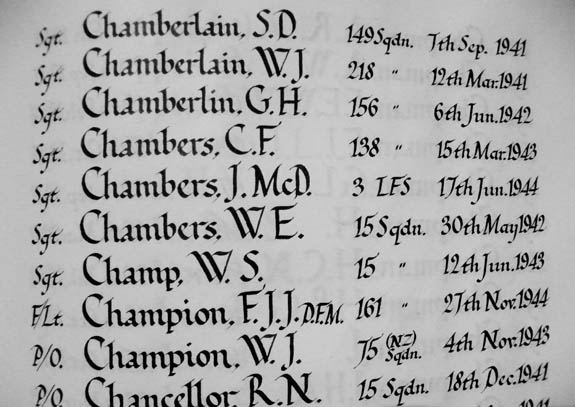 Sgt. Chamberlain, S.D. 149 Sqdn. 7th Sep. 1941
Sgt. Chamberlain, W.J. 218 " 12th Mar. 1941
Sgt. Chamberlin, G.H. 156 " 6th Jun. 1942
Sgt. Chambers, C.F. 138 " 15th Mar. 1943
Sgt. Chambers, J. McD. 3 LFS 17th Jun. 1944
Sgt. Chambers, W.E. 15 Sqdn. 30th May 1942
Sgt. Champ, W.S. 15 " 12th Jun. 1943
F/Lt. Champion, F.J.J. D.F.M. 161 " 27th Nov. 1944
P/O. Champion, W.J. 75 (NZ) Sqdn. 4th Nov. 1943
P/O. Chancellor, R.N. 15 Sqdn. 18th Dec. 1941